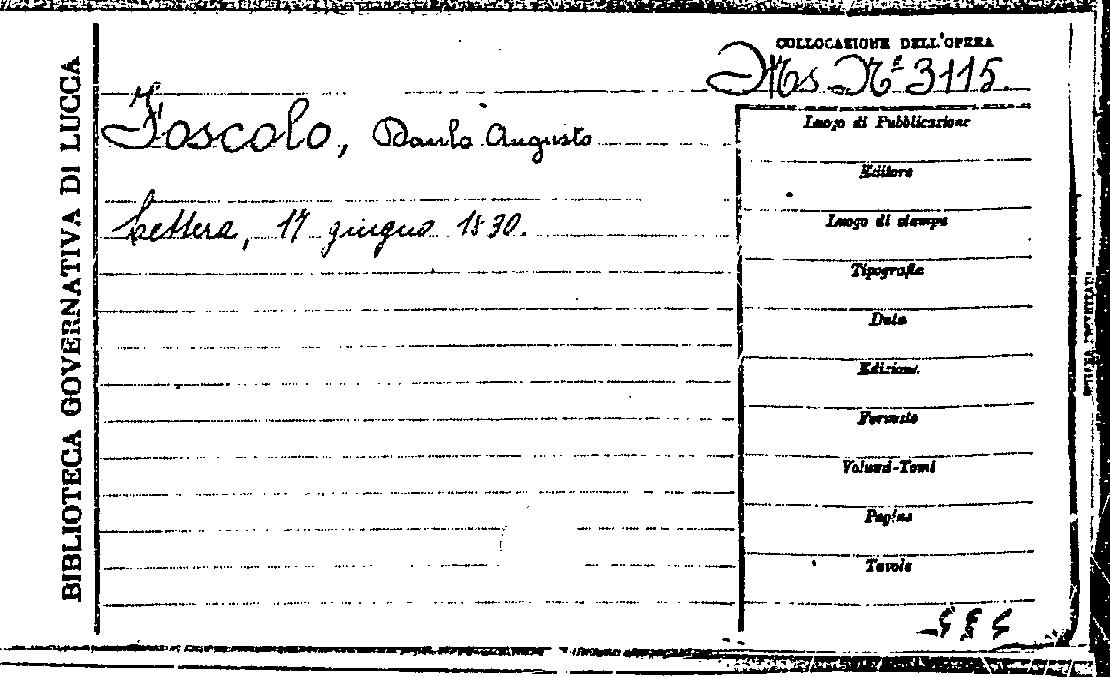 BIBLIOTECA GOVERNATIVA DI LUCCA
COLLOCAZIONE DELL'OPERA
Ms. Nº 3115.
Foscolo, Paulo Augusto
Lettera, 17 giugno 1830.
Luogo di Pubblicazione
Editore
Luogo di stampa
Tipografia
Data
Edizione
Formato
Volumi-Tomi
Pagine
Tavole